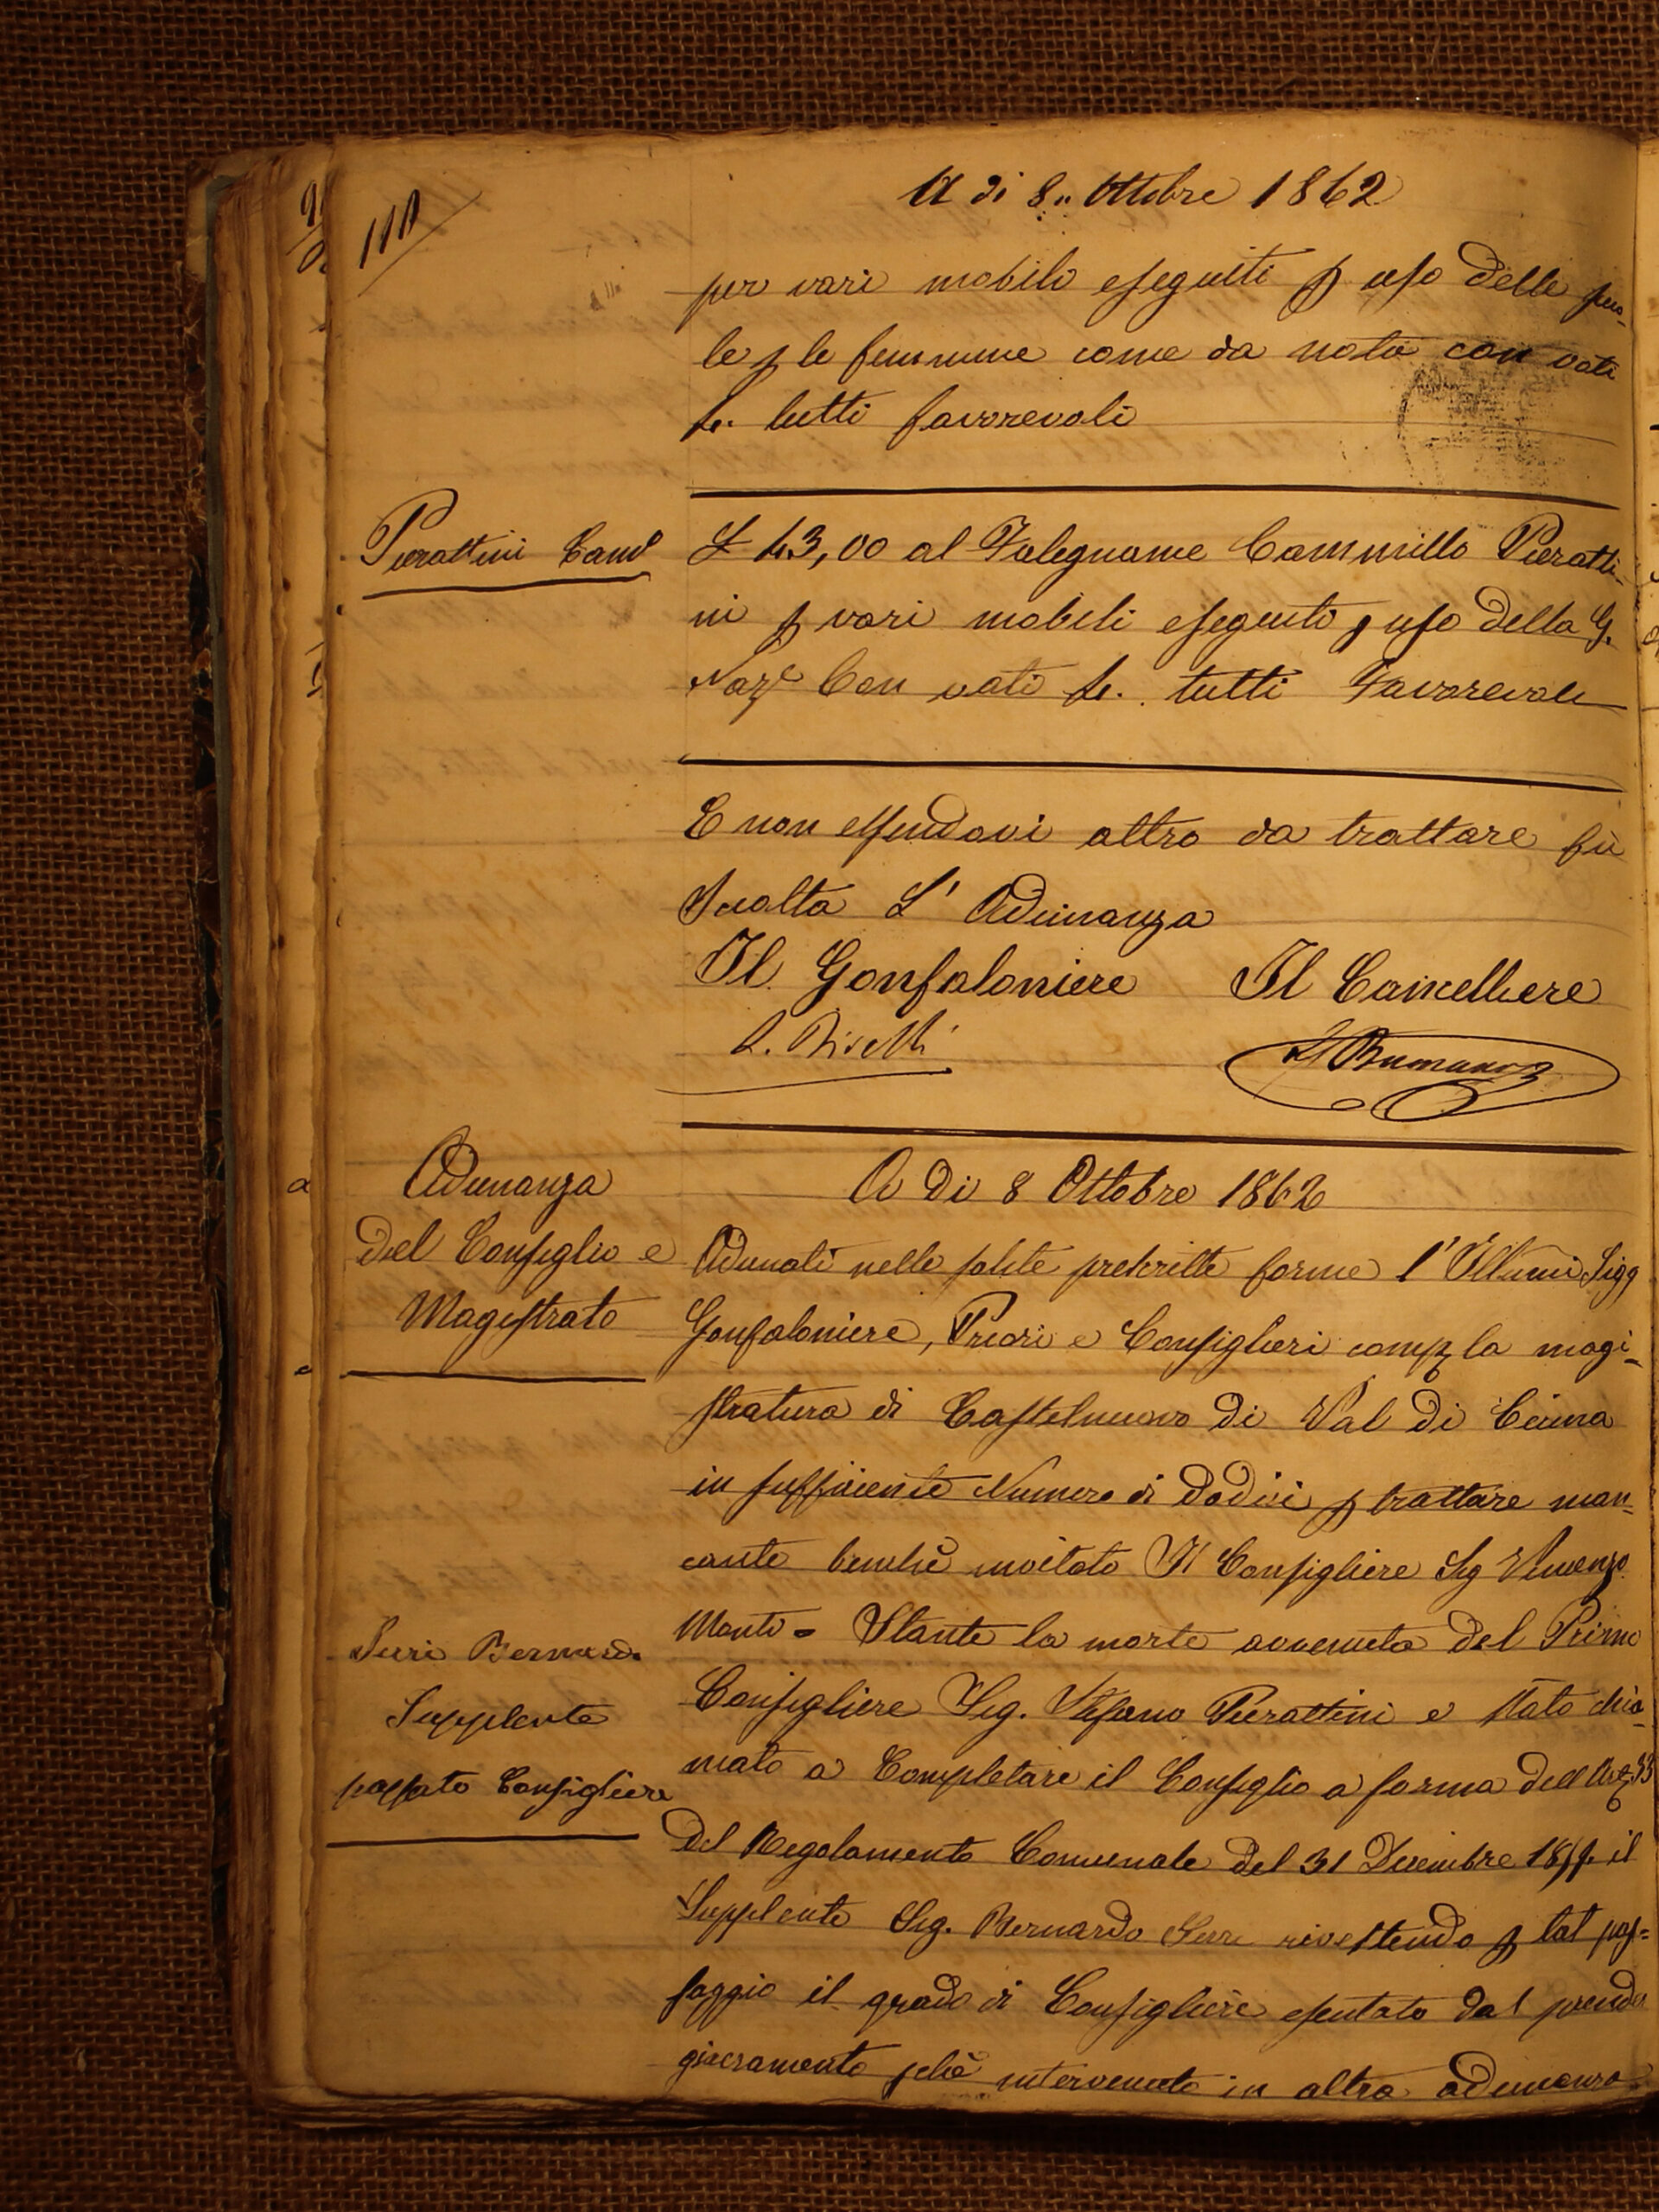 110
A di 8 Ottobre 1862
per vari mobili eseguiti p uso delle scuo-
le p le femmine come da nota con voti
4. tutti favorevoli
Pierattini Caml
£ 43,00 al Falegname Cammillo Pieratti-
ni p vari mobili eseguiti p uso della G.
Naze Con voti 4. tutti Favorevoli
E non essendovi altro da trattare fù
Sciolta L' Adunanza
Il Gonfaloniere Il Cancelliere
Adunanza
del Consiglio e
Magistrato
A Di 8 Ottobre 1862
Adunati nelle solite prescritte forme l' Illumi Sigg
Gonfaloniere, Priori e Consiglieri comp la magi-
stratura di Castelnuovo di Val di Cecina
in sufficiente Numero di Dodici p trattare man-
cante benchè invitato Il Consigliere Sig Vincenzo
Monti = Stante la morte avvenuta del Primo
Serri Bernardo
Supplente
passato Consigliere
Consigliere Sig. Stefano Pierattini e stato chia-
mato a Completare il Consiglio a forma dell Art 33
Del Regolamento Comunale del 31 Decembre il
Supplente Sig. Bernardo Serri rivestendo p tal pas=
saggio il grado di Consigliere esentato dal prender
giuramento pchè intervenuto in altra adunanza